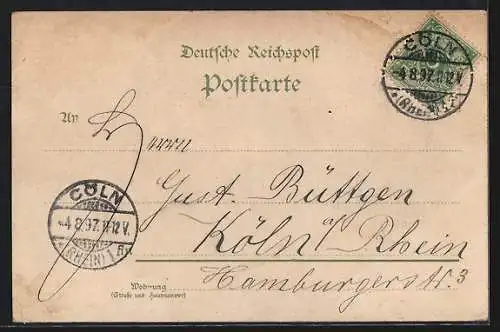 Deutsche Reichspost
Postkarte
CÖLN
4.8.97.11-12V.
(RHEIN)
An Herrn
Gust. Büttgen
Köln a/ Rhein
Hamburgerstr. 3
CÖLN
4.8.97.11-12V.
(RHEIN) 1
Wohnung
(Straße und Hausnummer)